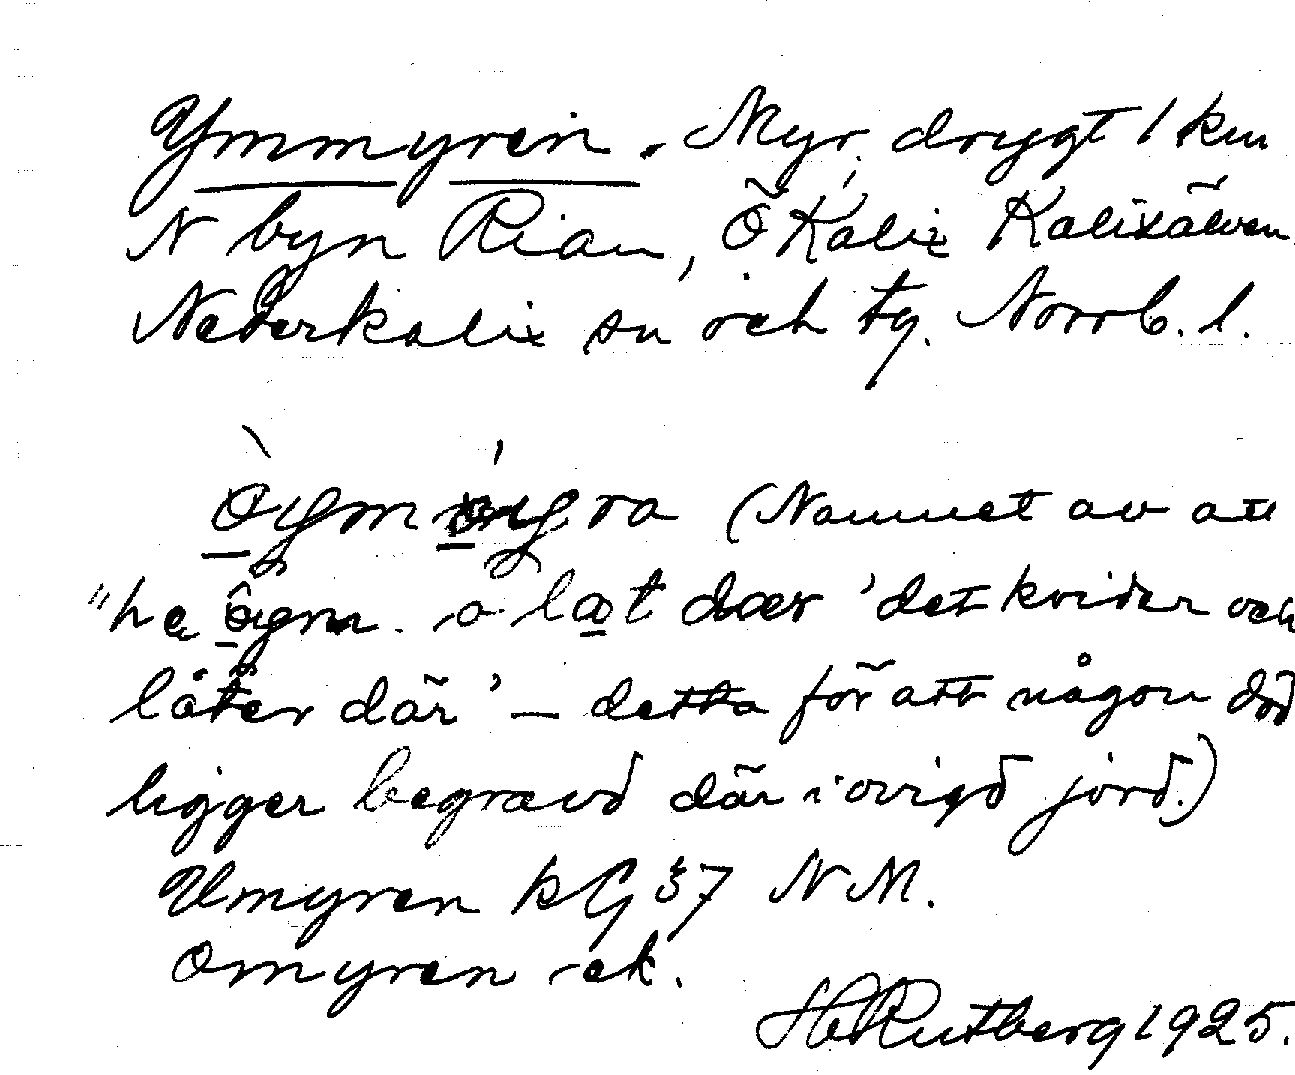 Ymmyren. Myr, drygt 1 km
N byn Rian, Ö Kalix Kalixälven
Nederkalix sn och tg. Norrb. l.
(Namnet av att
"he låt dær 'det kvider och
låter där' — detta för att någon död
ligger begravd där i ovigd jord.)
Umyren kG 37 NM.
Omyren ek.
H Rutberg 1925.